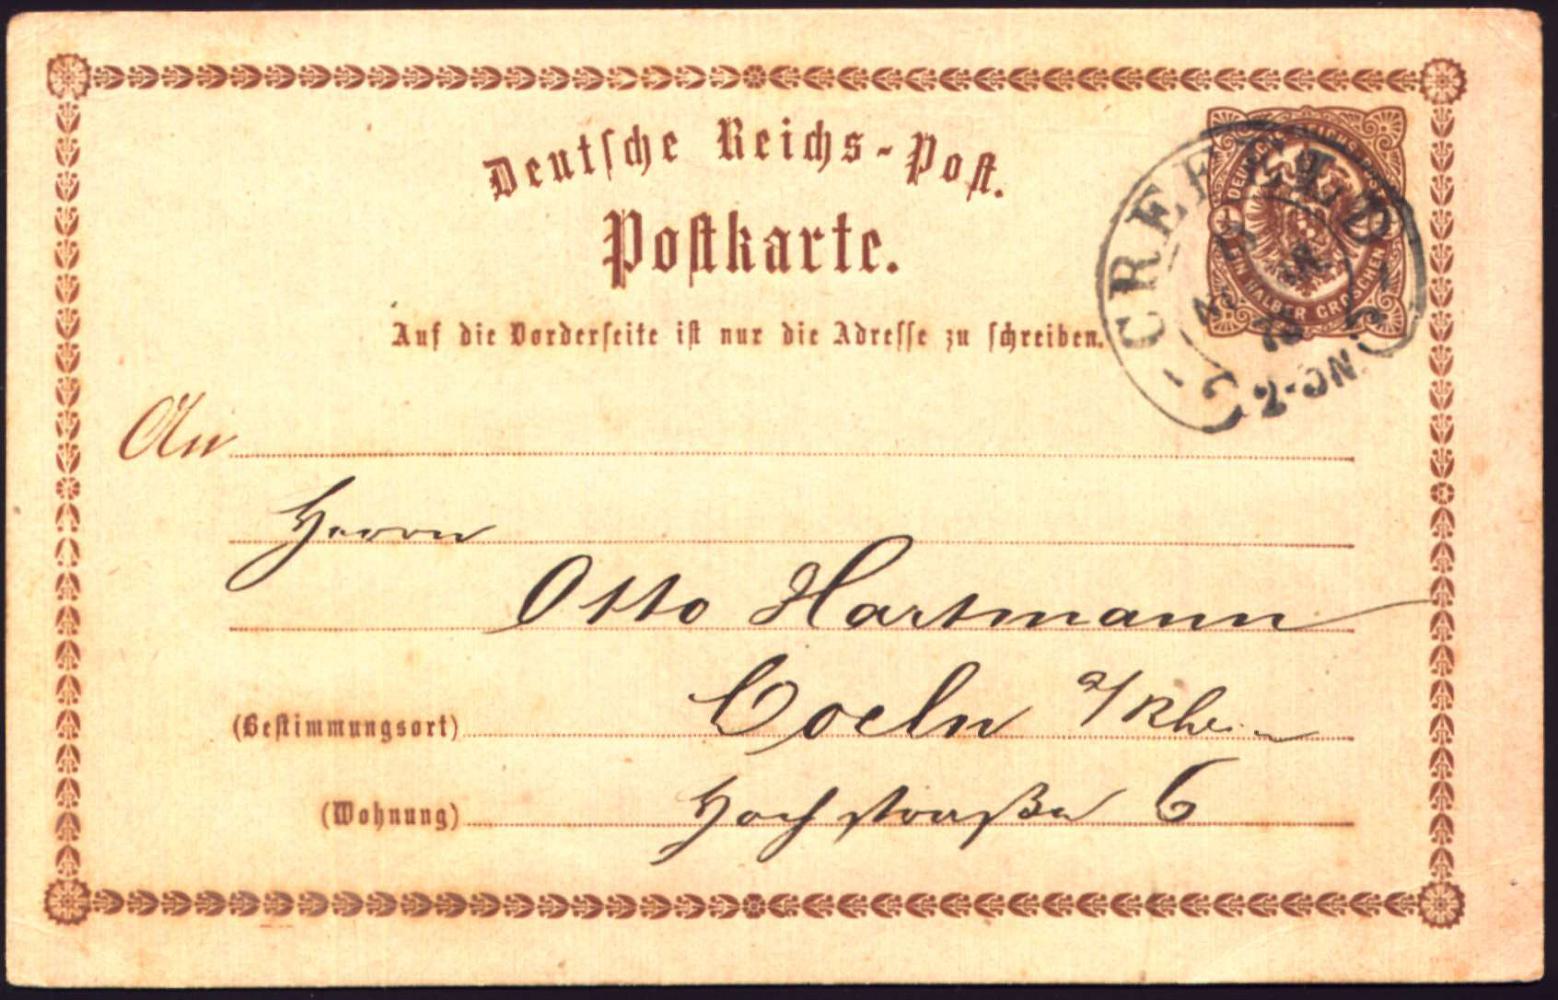 Deutsche Reichs-Post.
Postkarte.
Auf die Vorderseite ist nur die Adresse zu schreiben.
DEUTSCHE REICHSPOST
EIN HALBER GROSCHEN
CREFELD
75
2-3N.
An
Herrn
Otto Hartmann
Coeln a/Rhein
(Bestimmungsort)
Hochstraße 6
(Wohnung)